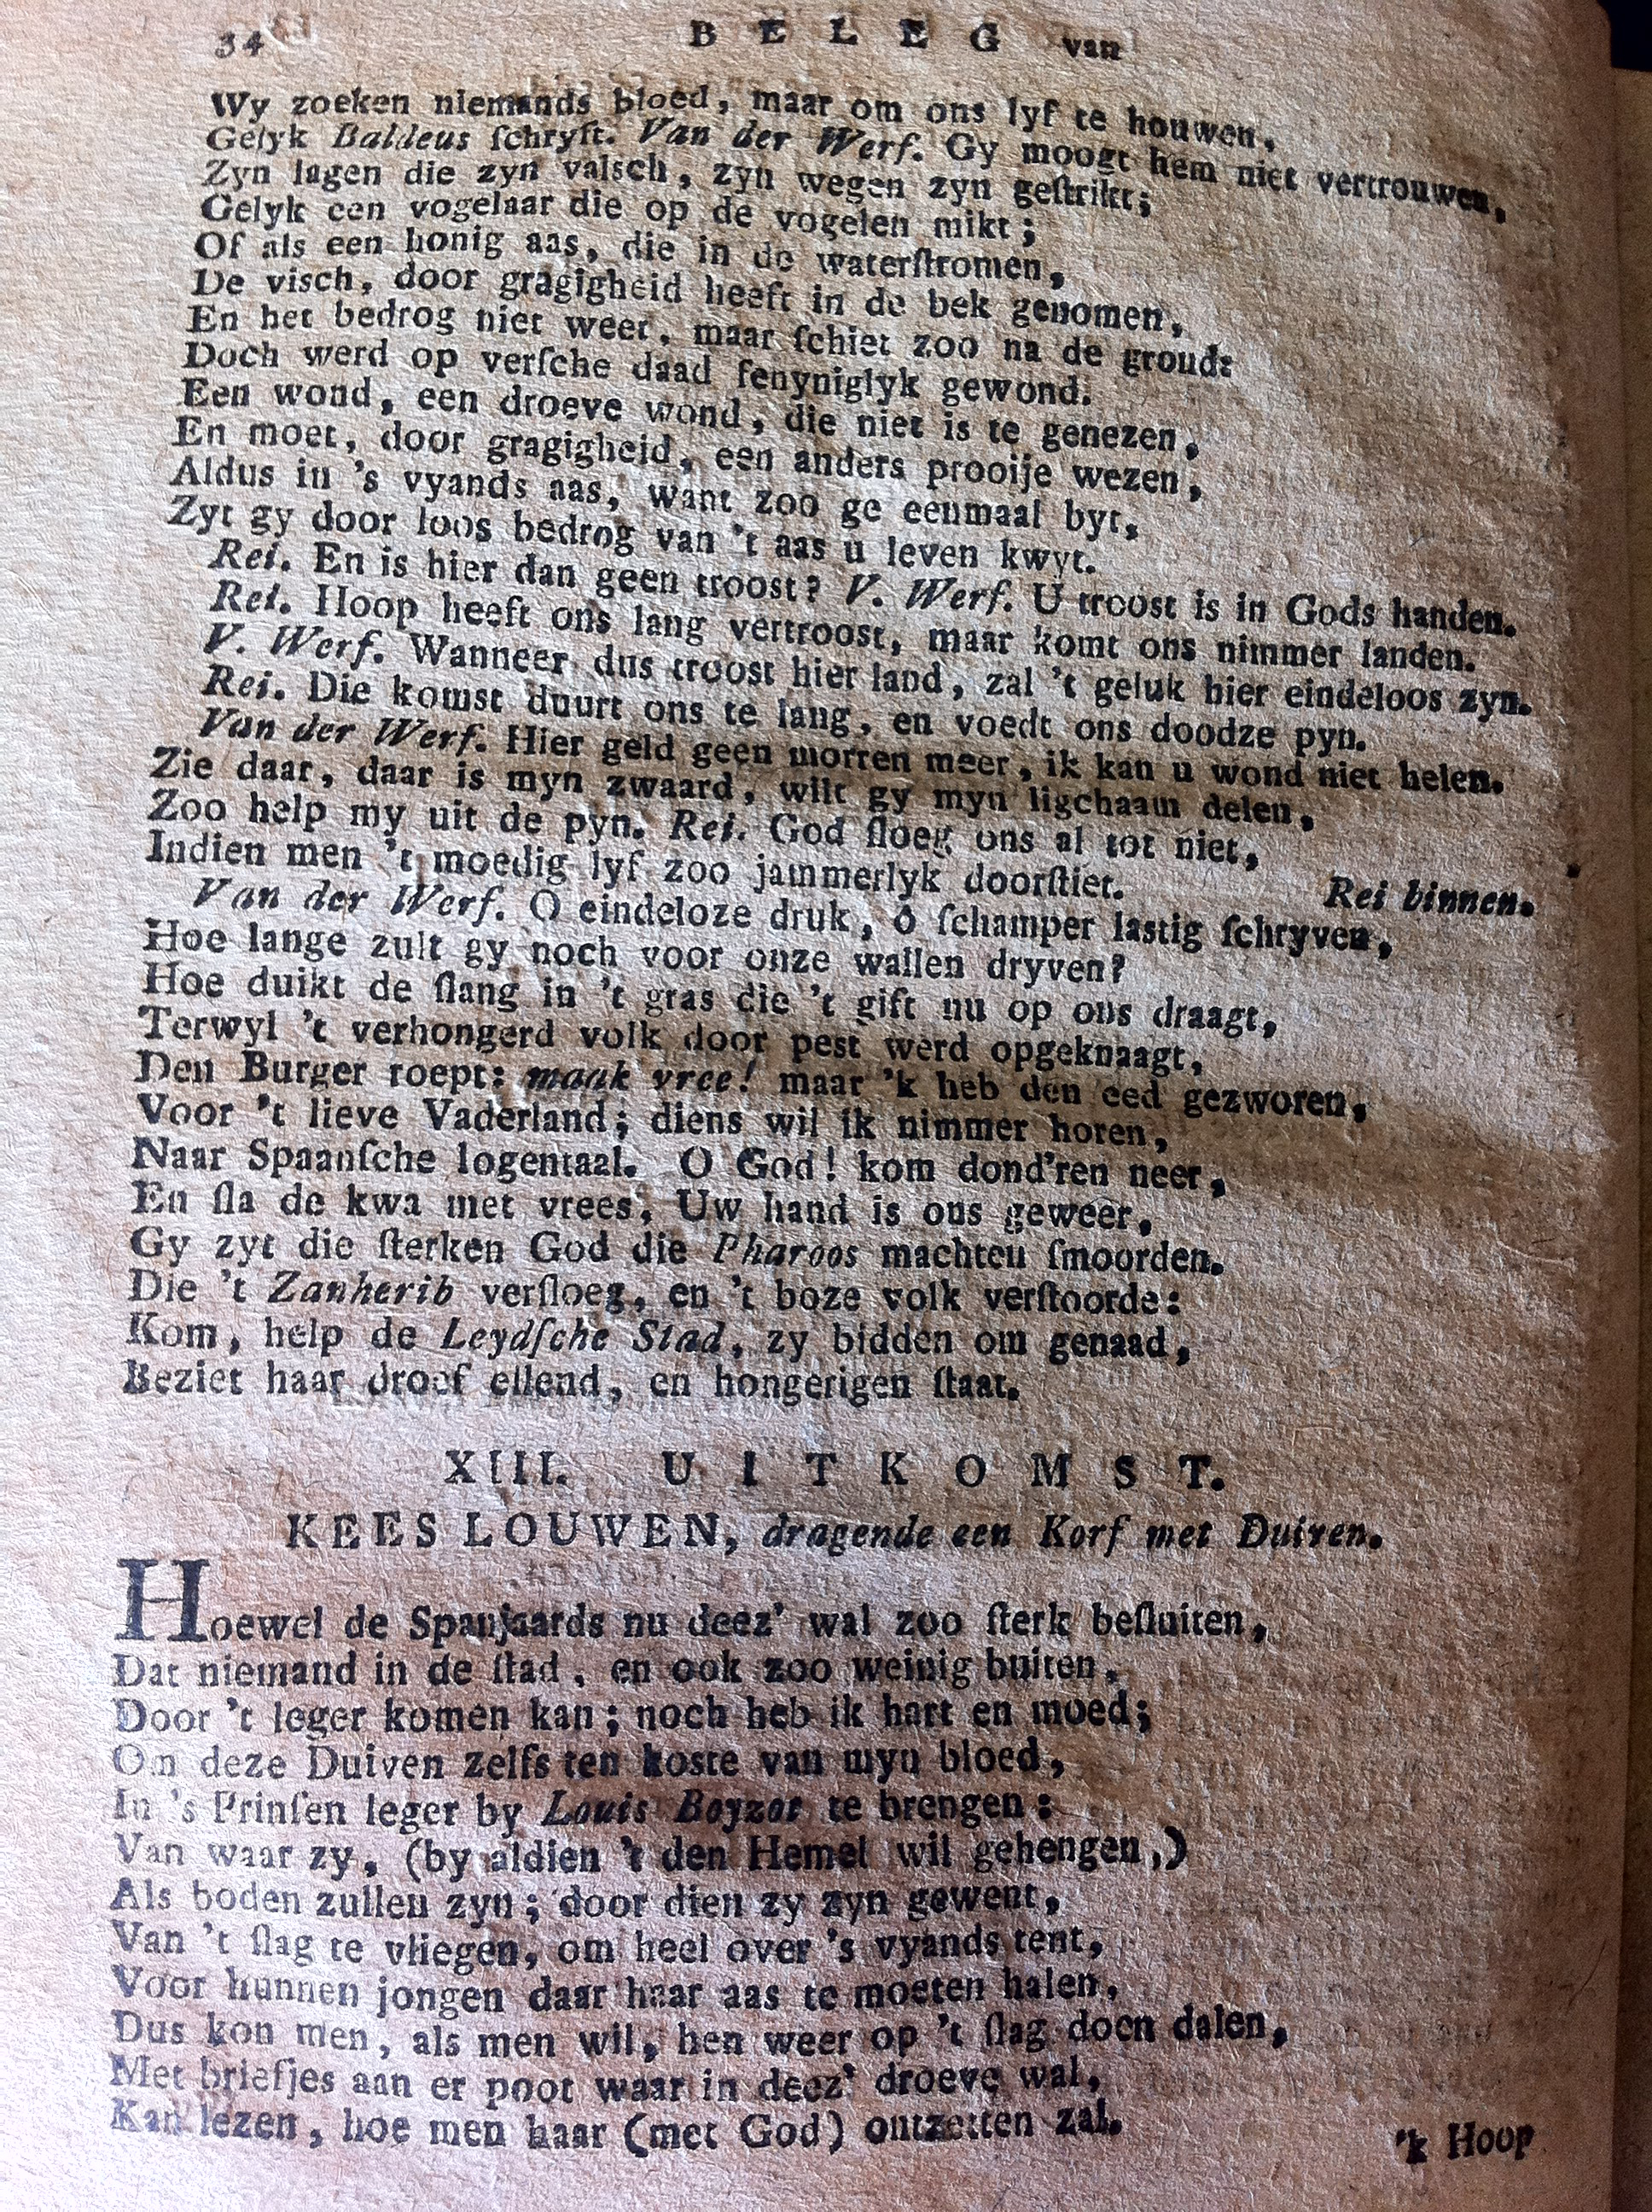 34 BELEG van
Wy zoeken niemands bloed, maar om ons lyf te houwen,
Gelyk Baldeus ſchryft. Van der Werf. Gy moogt hem niet vertrouwen,
Zyn lagen die zyn valsch, zyn wegen zyn geſtrikt;
Gelyk een vogelaar die op de vogelen mikt;
Of als een honig aas, die in de waterſtromen,
De visch, door gragigheid heeft in de bek genomen,
En het bedrog niet weet, maar ſchiet zoo na de grond:
Doch werd op verſche daad fenyniglyk gewond.
Een wond, een droeve wond, die niet is te genezen,
En moet, door gragigheid, een anders prooije wezen,
Aldus in 's vyands aas, want zoo ge eenmaal byt,
Zyt gy door loos bedrog van 't aas u leven kwyt.
Rei. En is hier dan geen troost? V. Werf. U troost is in Gods handen.
Rei. Hoop heeft ons lang vertroost, maar komt ons nimmer landen.
V. Werf. Wanneer dus troost hier land, zal 't geluk hier eindeloos zyn.
Rei. Die komst duurt ons te lang, en voedt ons doodze pyn.
Van der Werf. Hier geld geen morren meer, ik kan u wond niet helen.
Zie daar, daar is myn zwaard, wilt gy myn ligchaam delen,
Zoo help my uit de pyn. Rei. God ſloeg ons al tot niet,
Indien men 't moedig lyf zoo jammerlyk doorſtiet. Rei binnen.
Van der Werf. O eindeloze druk, ô ſchamper lastig ſchryven,
Hoe lange zult gy noch voor onze wallen dryven?
Hoe duikt de ſlang in 't gras die 't gift nu op ons draagt,
Terwyl 't verhongerd volk door pest werd opgeknaagt,
Den Burger roept: maak vree! maar 'k heb den eed gezworen,
Voor 't lieve Vaderland; diens wil ik nimmer horen,
Naar Spaanſche logentaal. O God! kom dond'ren neer,
En ſla de kwa met vrees, Uw hand is ons geweer,
Gy zyt die ſterken God die Pharoos machten ſmoorden.
Die 't Zanherib verſloeg, en 't boze volk verſtoorde:
Kom, help de Leydſche Stad, zy bidden om genaad,
Beziet haar droef ellend, en hongerigen ſtaat.
XIII. UITKOMST.
KEES LOUWEN, dragende een Korf met Duiven.
Hoewel de Spanjaards nu deez' wal zoo ſterk beſluiten,
Dat niemand in de ſtad, en ook zoo weinig buiten,
Door 't leger komen kan; noch heb ik hart en moed;
Om deze Duiven zelfs ten koste van myn bloed,
In 's Prinſen leger by Louis Boyzot te brengen:
Van waar zy, (by aldien 't den Hemel wil gehengen,)
Als boden zullen zyn; door dien zy zyn gewent,
Van 't ſlag te vliegen, om heel over 's vyands tent,
Voor hunnen jongen daar haar aas te moeten halen,
Dus kon men, als men wil, hen weer op 't ſlag doen dalen,
Met briefjes aan er poot waar in deez' droeve wal,
Kan lezen, hoe men haar (met God) ontzetten zal.
'k Hoop